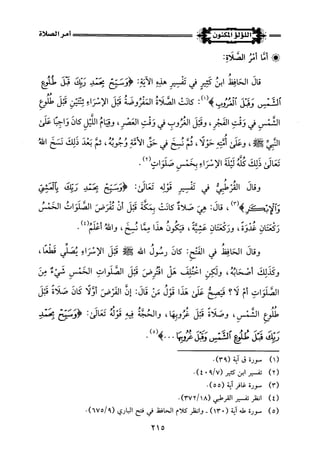 اللؤلؤ المكنون
أمر الصلاة
* أَمَّا أَمْرُ الصَّلَاةِ:
قالَ الحَافِظُ ابنُ كَثِيرٍ في تَفْسِيرِ هذِهِ الآيَةِ: ﴿وَسَبِّحْ بِحَمْدِ رَبِّكَ قَبْلَ طُلُوعِ
الشَّمْسِ وَقَبْلَ الْغُرُوبِ﴾(١): كانَتْ الصَّلَاةُ المَفْرُوضَةُ قَبْلَ الإِسْرَاءِ ثِنْتَيْنِ قَبْلَ طُلُوعِ
الشَّمْسِ في وَقْتِ الفَجْرِ، وقَبْلَ الغُرُوبِ في وَقْتِ العَصْرِ، وقِيَامُ اللَّيْلِ كانَ وَاجِبًا عَلَى
النَّبِيِّ ﷺ، وعَلَى أُمَّتِهِ حَوْلًا، ثُمَّ نُسِخَ في حَقِّ الأُمَّةِ وُجُوبُهُ، ثُمَّ بَعْدَ ذَلِكَ نَسَخَ اللهُ
تَعَالَى ذَلِكَ كُلَّهُ لَيْلَةَ الإِسْرَاءِ بِخَمْسِ صَلَوَاتٍ(٢).
وقالَ القُرْطُبِيُّ في تَفْسِيرِ قَوْلِهِ تَعَالَى: ﴿وَسَبِّحْ بِحَمْدِ رَبِّكَ بِالْعَشِيِّ
وَالْإِبْكَارِ﴾(٣)، قالَ: هِيَ صَلَاةٌ كانَتْ بِمَكَّةَ قَبْلَ أَنْ تُفْرَضَ الصَّلَوَاتُ الخَمْسُ
رَكْعَتَانِ غُدْوَةً، ورَكْعَتَانِ عَشِيَّةً، فيَكُونُ هذَا مِمَّا نُسِخَ، واللهُ أعْلَمُ(٤).
وقالَ الحَافِظُ في الفَتْحِ: كانَ رسُولُ اللهِ ﷺ قَبْلَ الإِسْرَاءِ يُصَلِّي قَطْعًا،
وكَذَلِكَ أصْحَابُهُ، ولَكِنِ اخْتُلِفَ هَلْ افْتُرِضَ قَبْلَ الصَّلَوَاتِ الخَمْسِ شَيْءٌ مِنَ
الصَّلَوَاتِ أمْ لَا؟ فَيَصِحُّ عَلَى هذَا قَوْلُ مَنْ قالَ: إنَّ الفَرْضَ أوَّلًا كَانَ صَلَاةً قَبْلَ
طُلُوعِ الشَّمْسِ، وصَلَاةً قَبْلَ غُرُوبِهَا، والحُجَّةُ فِيهِ قَوْلُهُ تَعَالَى: ﴿وَسَبِّحْ بِحَمْدِ
رَبِّكَ قَبْلَ طُلُوعِ الشَّمْسِ وَقَبْلَ غُرُوبِهَا...﴾(٥).
(١) سورة ق آية (٣٩).
(٢) تفسير ابن كثير (٧/٤٠٩).
(٣) سورة غافر آية (٥٥).
(٤) انظر تفسير القرطبي (١٨/٣٧٢).
(٥) سورة طه آية (١٣٠) - وانظر كلام الحافظ في فتح الباري (٩/٦٧٥).
٢١٥